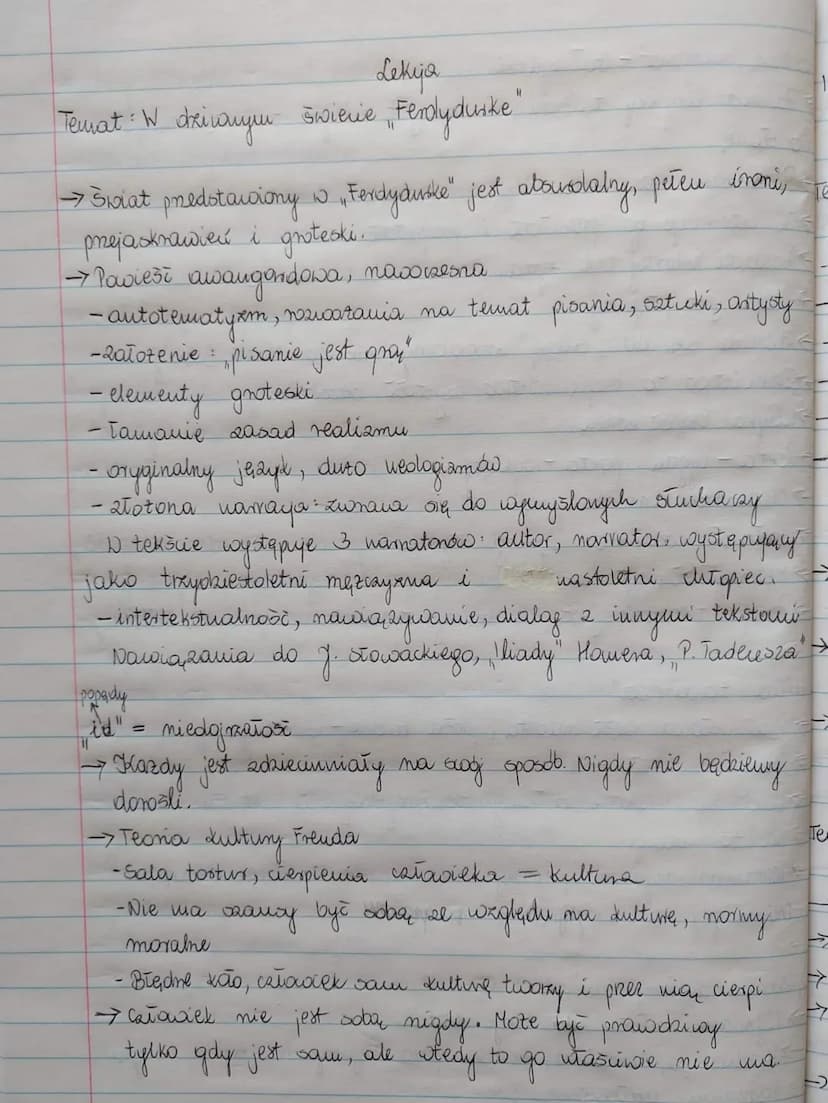 Lekcja
Temat: W dziwnym świecie „Ferdydurke"
→ Świat przedstawiony w „Ferdydurke" jest absurdalny, pełen ironi,
przejaskrawień i groteski.
→ Powieść awangardowa, nawoczesna
- autotematyzm, rozważania na temat pisania, sztuki, artysty
- założenie: „pisanie jest grą"
- elementy groteski
- łamanie zasad realizmu
- oryginalny język, dużo neologizmów
- złożona narracja: zwraca się do wymyślonych słuchaczy
W tekście występuje 3 narratorów: autor, narrator, występujący
jako trzydziestoletni mężczyzna i nastoletni chłopiec.
- intertekstualność, nawiązywanie, dialog z innymi tekstami
Nawiązania do J. Słowackiego, „Iliady" Homera, „P. Tadeusza"
popędy
„id" = niedojrzałość
→ Każdy jest zdziecinniały na swój sposób. Nigdy nie będziemy
dorośli.
→ Teoria kultury Freuda
- Sala tortur, cierpienia człowieka = kultura
- Nie ma szansy być sobą ze względu na kulturę, normy
moralne
- Błędne koło, człowiek sam kulturę tworzy i przez nią cierpi
→ Człowiek nie jest sobą nigdy. Może być prawdziwy
tylko gdy jest sam, ale wtedy to go właściwie nie ma.